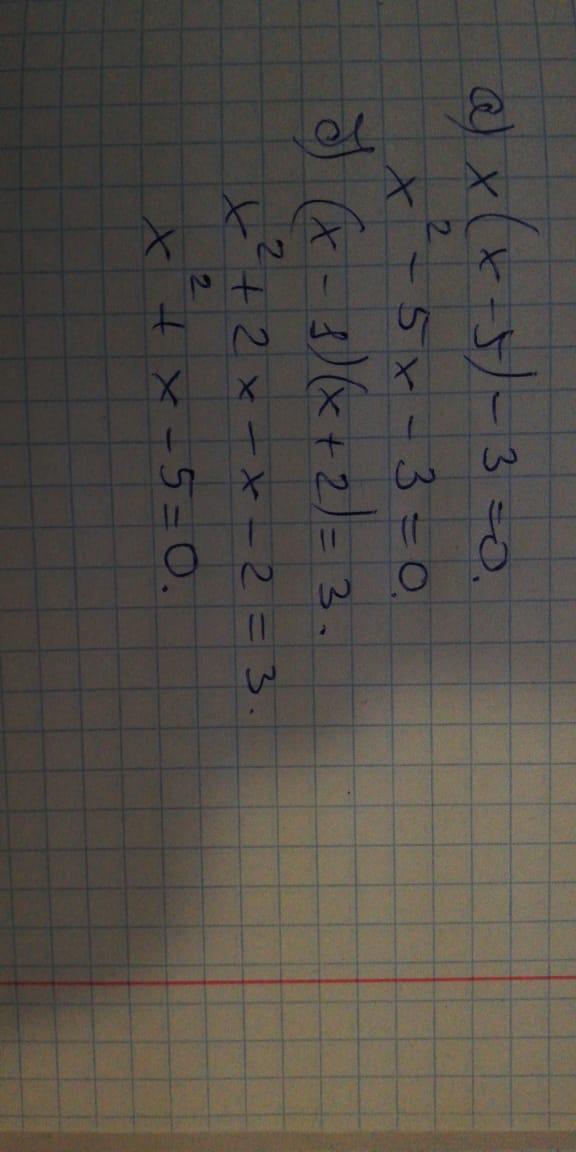 а) x(x-5)-3=0.
x²-5x-3=0.
б) (x-1)(x+2)=3.
x²+2x-x-2=3.
x²+x-5=0.